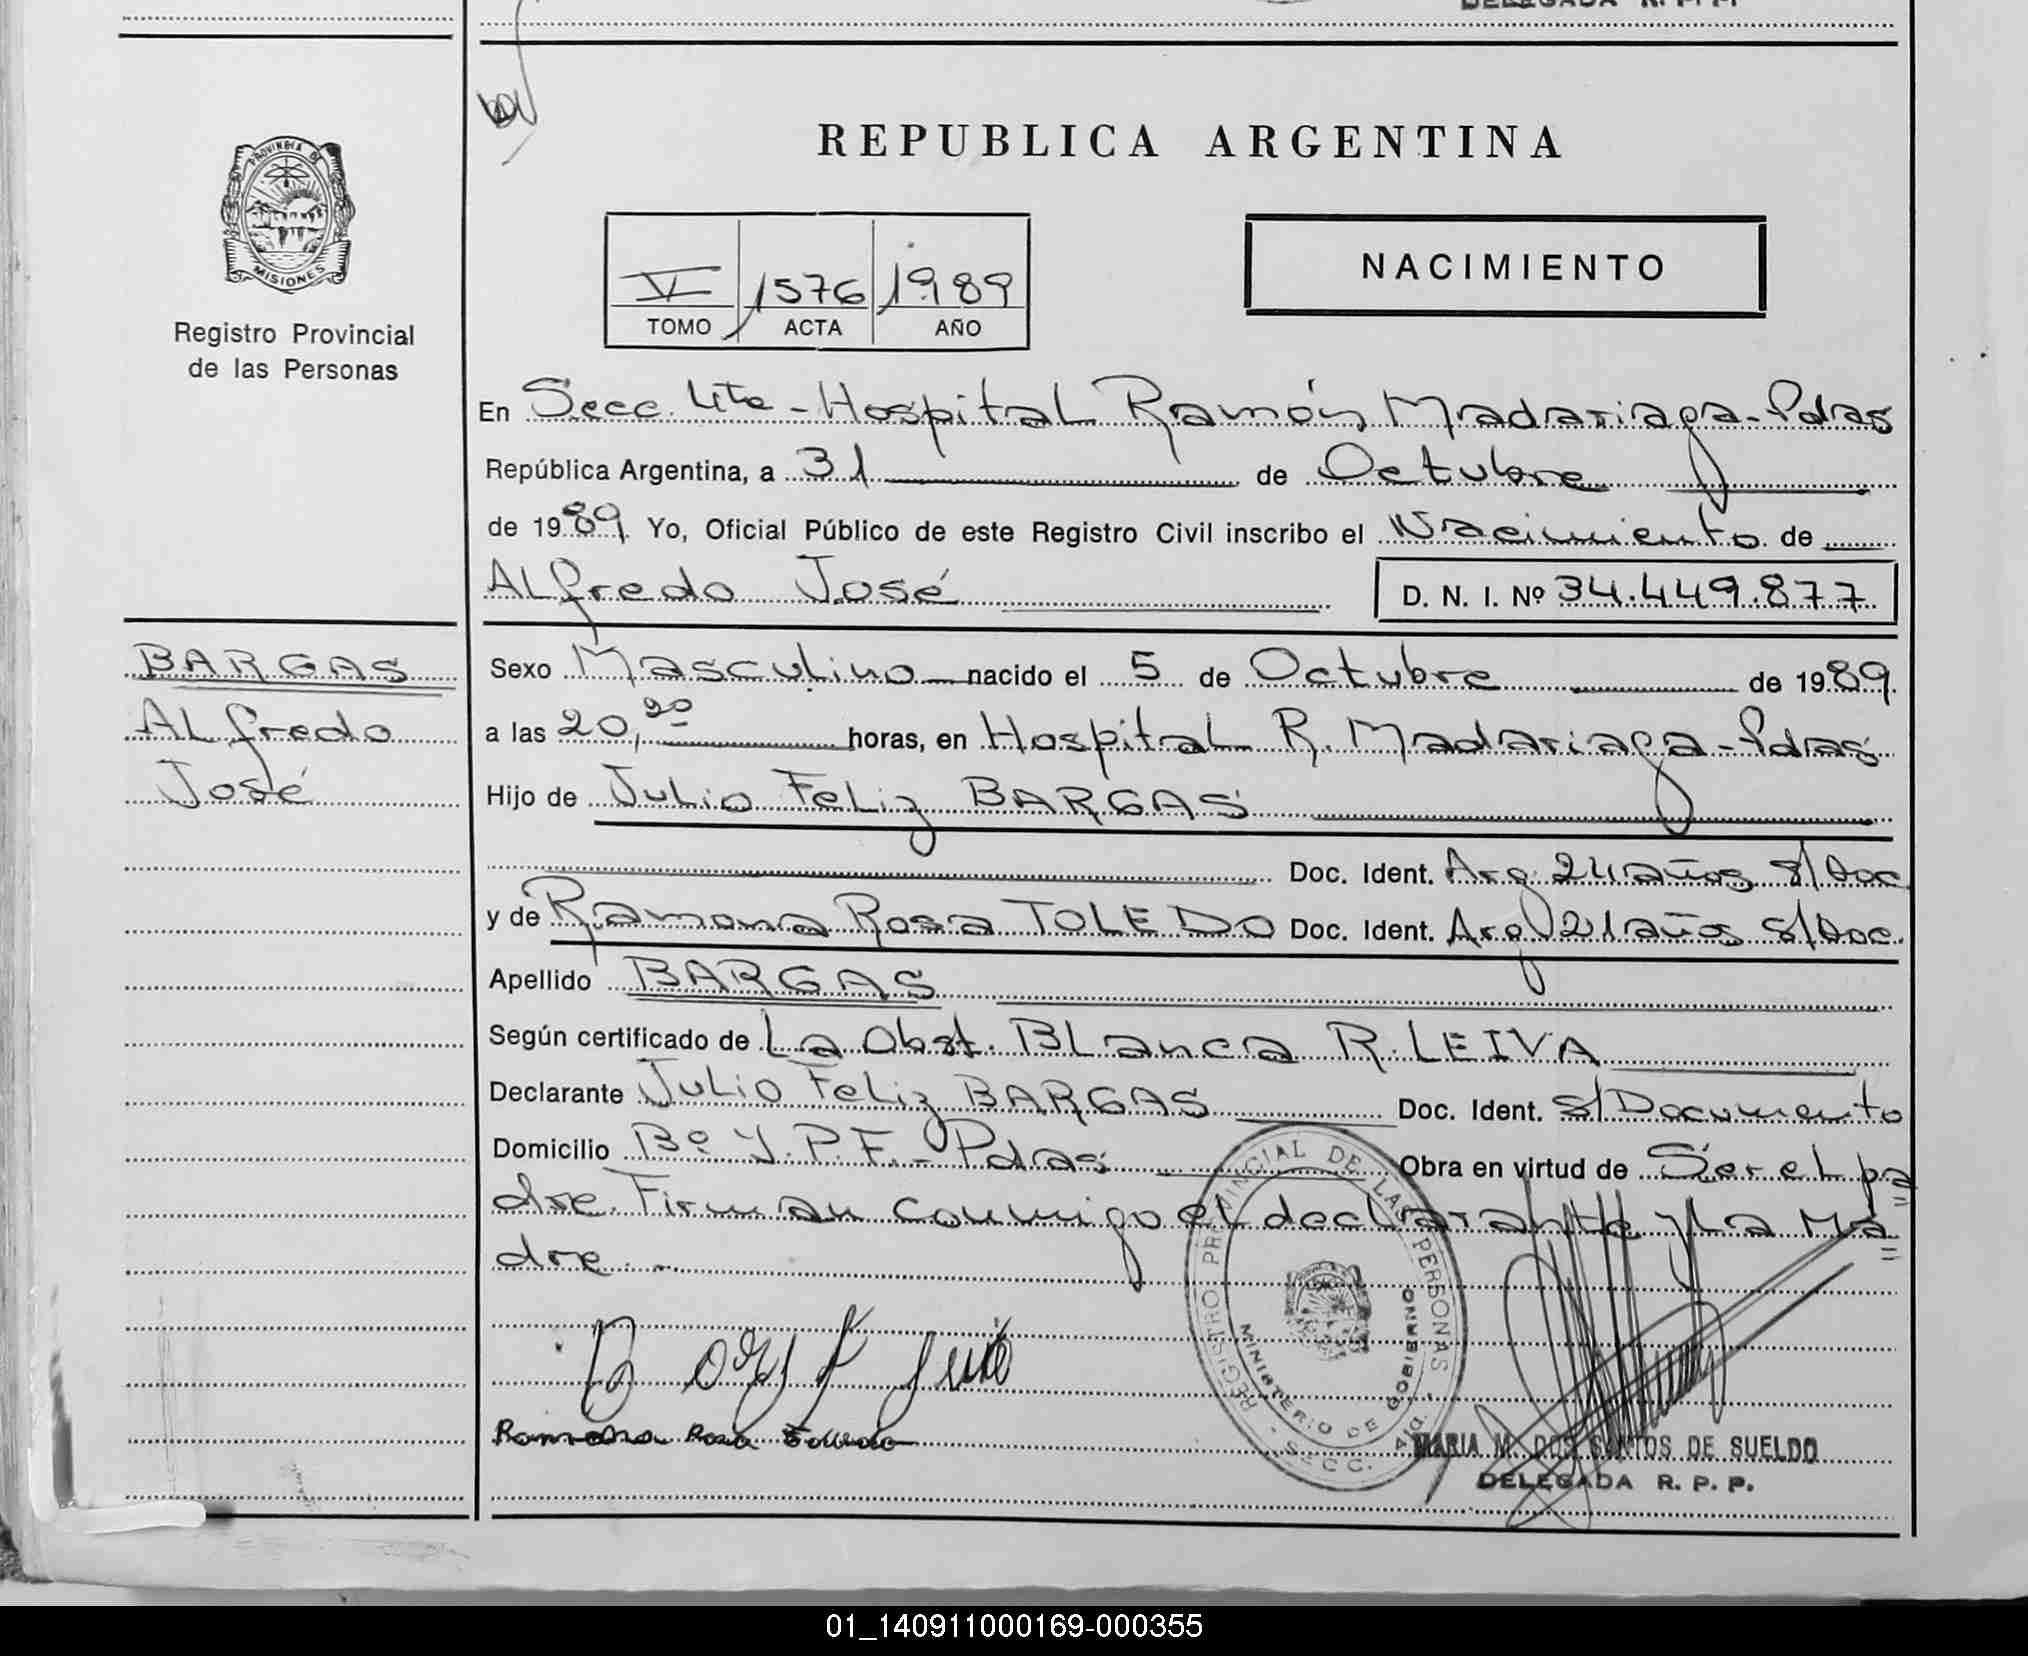 DELEGADA R. P. P.
REPUBLICA ARGENTINA
PROVINCIA DE
MISIONES
Registro Provincial
de las Personas
V 1576 1989
TOMO ACTA AÑO
NACIMIENTO
En Secc. 4ta - Hospital Ramón Madariaga - Pdas
República Argentina, a 31 de Octubre
de 1989. Yo, Oficial Público de este Registro Civil inscribo el Nacimiento de
ALfredo José D. N. I. Nº 34.449.877
BARGAS
ALfredo
José
Sexo Masculino nacido el 5 de Octubre de 1989.
a las 20,20 horas, en Hospital R. Madariaga - Pdas
Hijo de Julio Feliz BARGAS
Doc. Ident. Arg. 24 años S/Doc
y de Ramona Rosa TOLEDO Doc. Ident. Arg 21 años S/Doc.
Apellido BARGAS
Según certificado de La Obst. Blanca R. LEIVA
Declarante Julio Feliz BARGAS Doc. Ident. S/Documento
Domicilio Bº Y.P.F. - Pdas Obra en virtud de Ser el pa
dre. Firman conmigo el declarante y La Ma
dre. -
REGISTRO PROVINCIAL DE LAS PERSONAS
MINISTERIO DE GOBIERNO
Ramona Rosa Toledo
MARIA M. DOS SANTOS DE SUELDO
DELEGADA R. P. P.
01_140911000169-000355